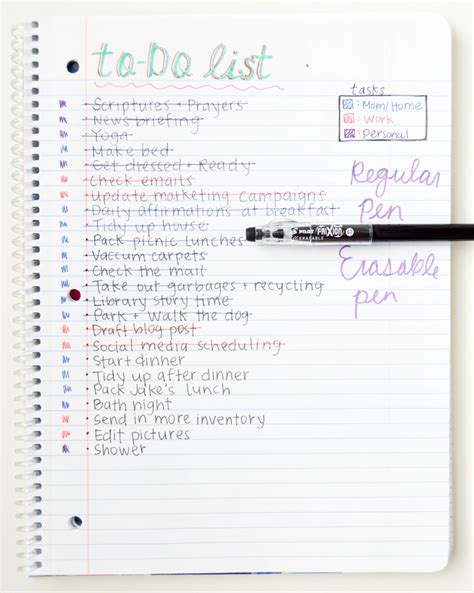 to-Do list
tasks
:Mom/Home
:Work
:Personal
· Scriptures + Prayers
· News briefing
· Yoga
· Make bed
· Get dressed + Ready
· Check emails
· Update marketing campaigns
· Daily affirmations at breakfast
· Tidy up house
· Pack picnic lunches
· Vaccum carpets
· Check the mail
· Take out garbages + recycling
· Library story time
· Park + Walk the dog
· Draft blog post
· Social media scheduling
· Start dinner
· Tidy up after dinner
· Pack Jake's lunch
· Bath night
· Send in more inventory
· Edit pictures
· Shower
Regular
Pen
PILOT FRIXION
ERASABLE
Erasable
pen